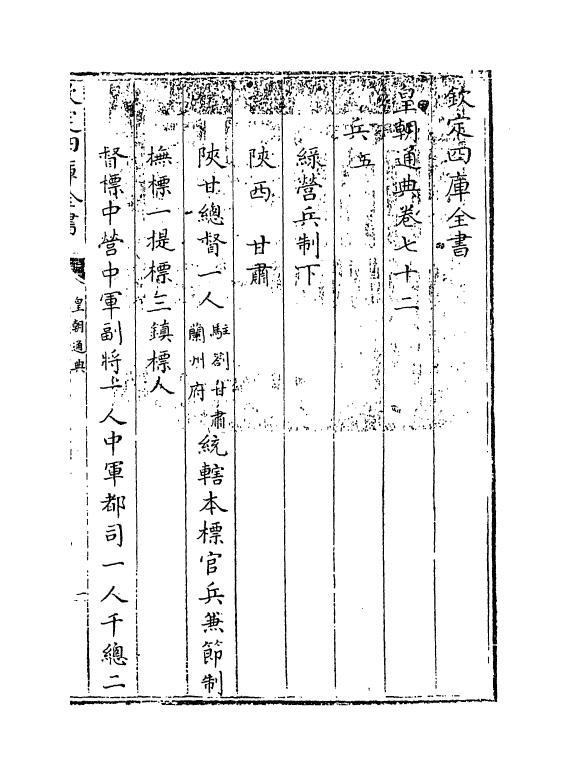 欽定四庫全書
皇朝通典卷七十二
兵五
綠營兵制下
陝西 甘肅
陝甘總督一人駐劄甘肅蘭州府統轄本標官兵兼節制
撫標一提標三鎮標
督標中營中軍副將一人中軍都司一人千總二
欽定四庫全書
皇朝通典
一